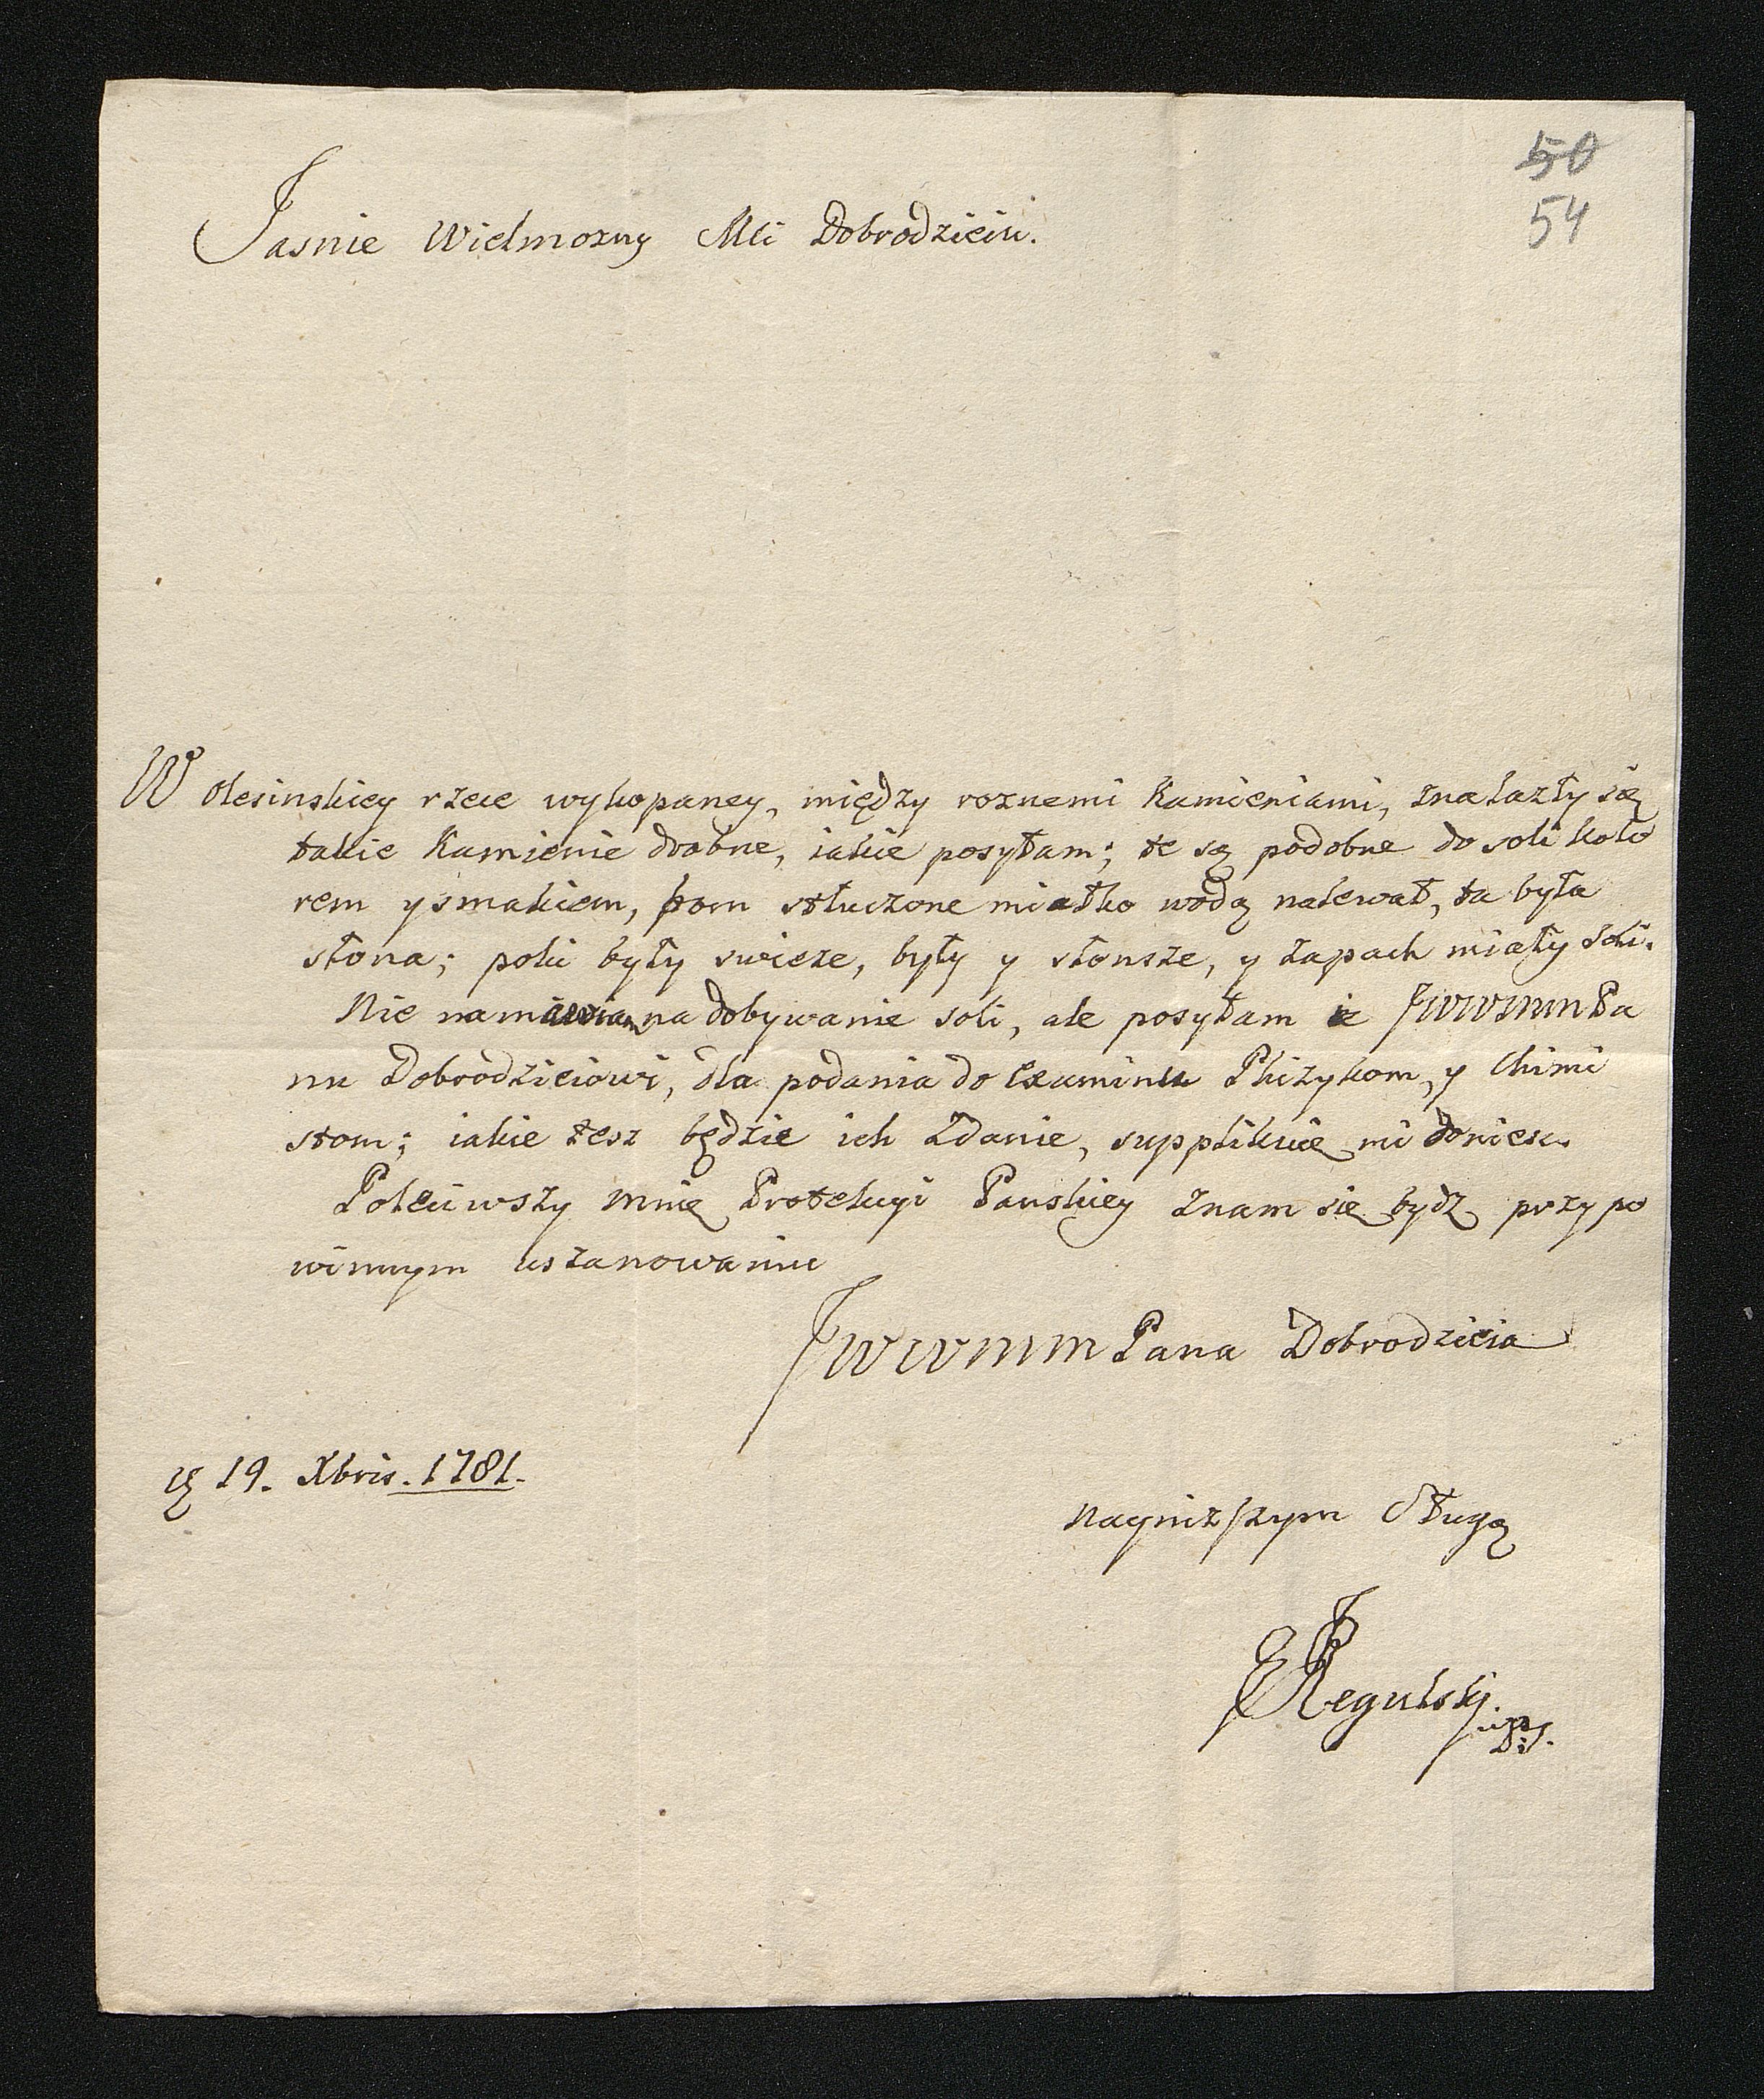 50
54
Jasnie Wielmozny Mci Dobrodzieiu.
W Olesinskiey rzece wykopaney, między roznemi Kamieniami, znalazły się
takie Kamienie drobne, iakie posyłam; te są podobne do soli kolo
rem y smakiem, pom stłuczone miałko wodą nalewał, ta była
słona; poki były swieze, były y słonsze, y zapach miały soli.
Nie namawiam na dobywanie soli, ale posyłam ie JWWMMPa
nu Dobrodzieiowi, dla podania do Examinu Phizykom, y Chimi
stom; iakie tesz będzie ich zdanie, supplikuię mi donieść.
Poleciwszy mnię Protekcyi Panskiey znam się bydz przy po
winnym uszanowaniu
JWWMMPana Dobrodzieia
19. Xbris. 1781.
Naynizszym Sługą
Regulski